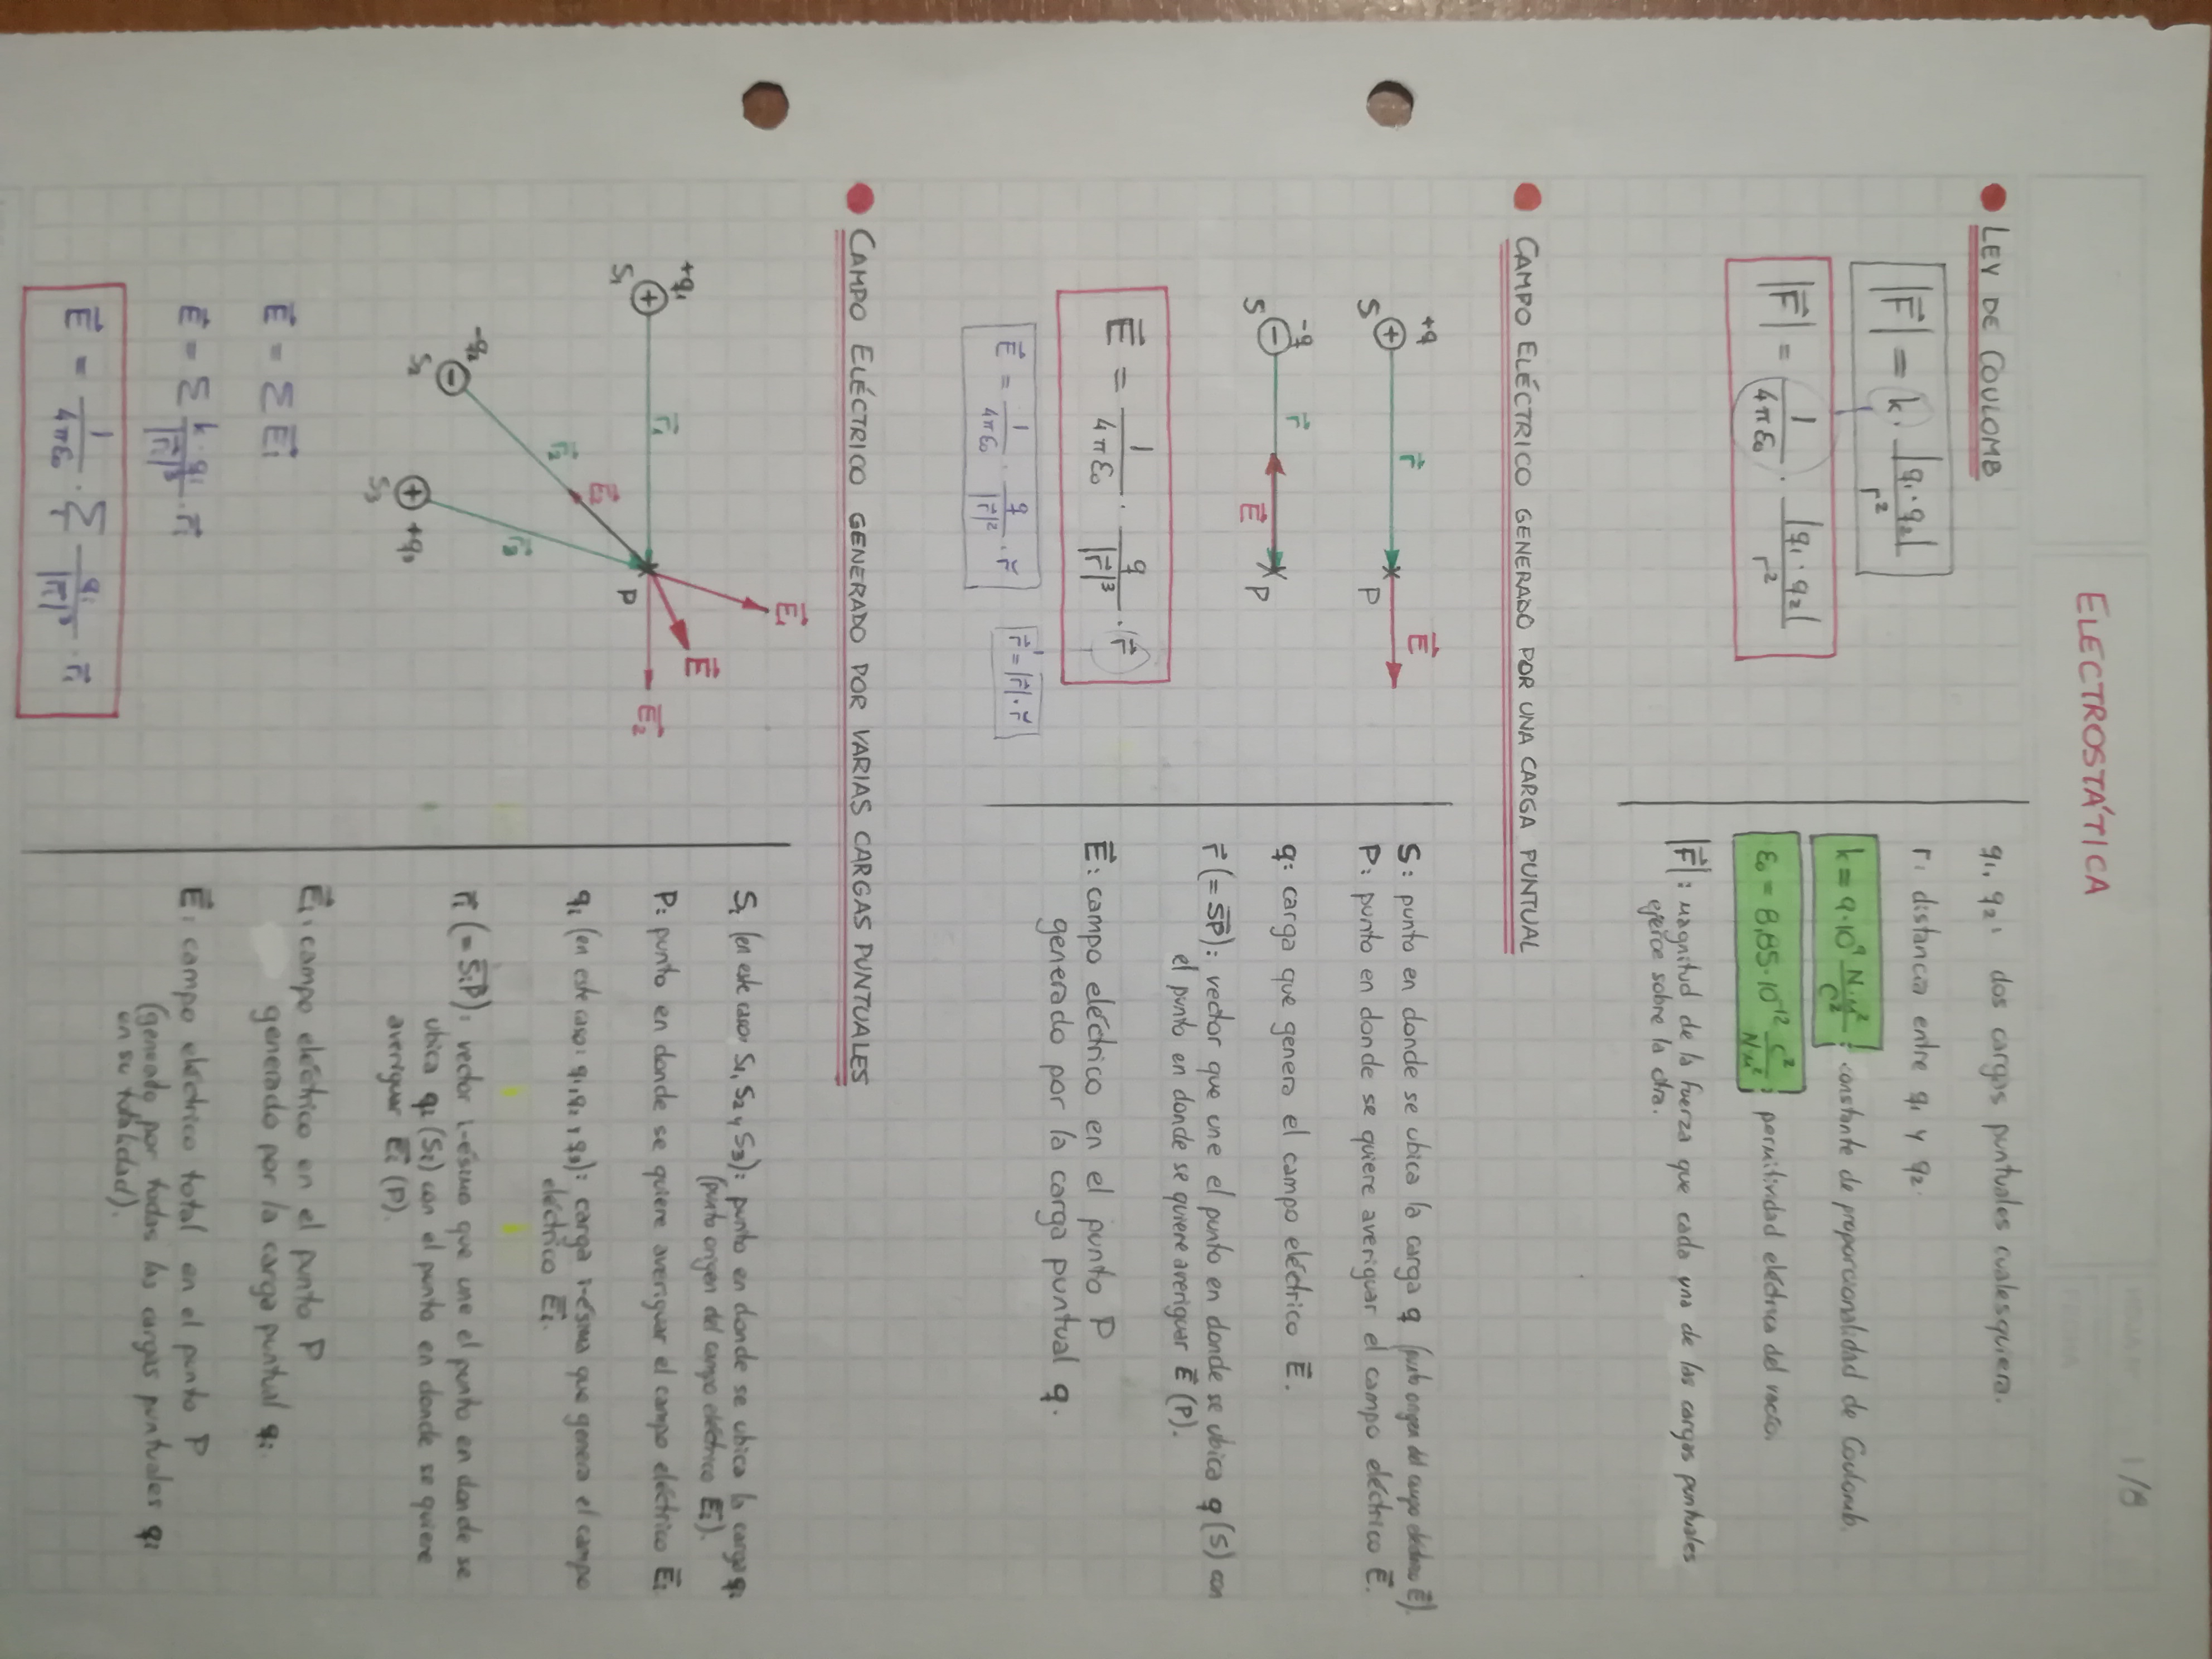 HOJA Nº
1/8
FECHA
ELECTROSTÁTICA
LEY DE COULOMB
|F⃗| = k · |q₁·q₂| / r²
|F⃗| = 1/(4πε₀) · |q₁·q₂| / r²
q₁, q₂: dos cargas puntuales cualesquiera.
r: distancia entre q₁ y q₂.
k = 9·10⁹ N·m²/C² : constante de proporcionalidad de Coulomb.
ε₀ = 8,85·10⁻¹² C²/N·m² : permitividad eléctrica del vacío.
|F⃗|: magnitud de la fuerza que cada una de las cargas puntuales
ejerce sobre la otra.
CAMPO ELÉCTRICO GENERADO POR UNA CARGA PUNTUAL
+q
r⃗
E⃗
+
S
P
-q
r⃗
−
S
E⃗
P
E⃗ = 1/(4πε₀) · q/|r⃗|³ · r⃗
E⃗ = 1/(4πε₀) · q/|r⃗|² · r̆
r⃗ = |r⃗| · r̆
S: punto en donde se ubica la carga q (punto origen del campo eléctrico E⃗).
P: punto en donde se quiere averiguar el campo eléctrico E⃗.
q: carga que genera el campo eléctrico E⃗.
r⃗ (= SP): vector que une el punto en donde se ubica q (S) con
el punto en donde se quiere averiguar E⃗ (P).
E⃗: campo eléctrico en el punto P
generado por la carga puntual q.
CAMPO ELÉCTRICO GENERADO POR VARIAS CARGAS PUNTUALES
E⃗₁
E⃗
+q₁
r⃗₁
E⃗₂
+
S₁
P
r⃗₂
r⃗₃
-q₂
−
S₂
+
+q₃
S₃
E⃗ = Σ E⃗i
E⃗ = Σ k·qi/|r⃗i|³ · r⃗i
E⃗ = 1/(4πε₀) · Σi qi/|r⃗i|³ · r⃗i
Si (en este caso: S₁, S₂ y S₃): punto en donde se ubica la carga qi
(punto origen del campo eléctrico E⃗i).
P: punto en donde se quiere averiguar el campo eléctrico E⃗i
qi (en este caso: q₁, q₂ y q₃): carga i-ésima que genera el campo
eléctrico E⃗i.
r⃗i (= SiP): vector i-ésimo que une el punto en donde se
ubica qi (Si) con el punto en donde se quiere
averiguar E⃗i (P).
E⃗i: campo eléctrico en el punto P
generado por la carga puntual qi.
E⃗: campo eléctrico total en el punto P
(generado por todas las cargas puntuales qi
en su totalidad).